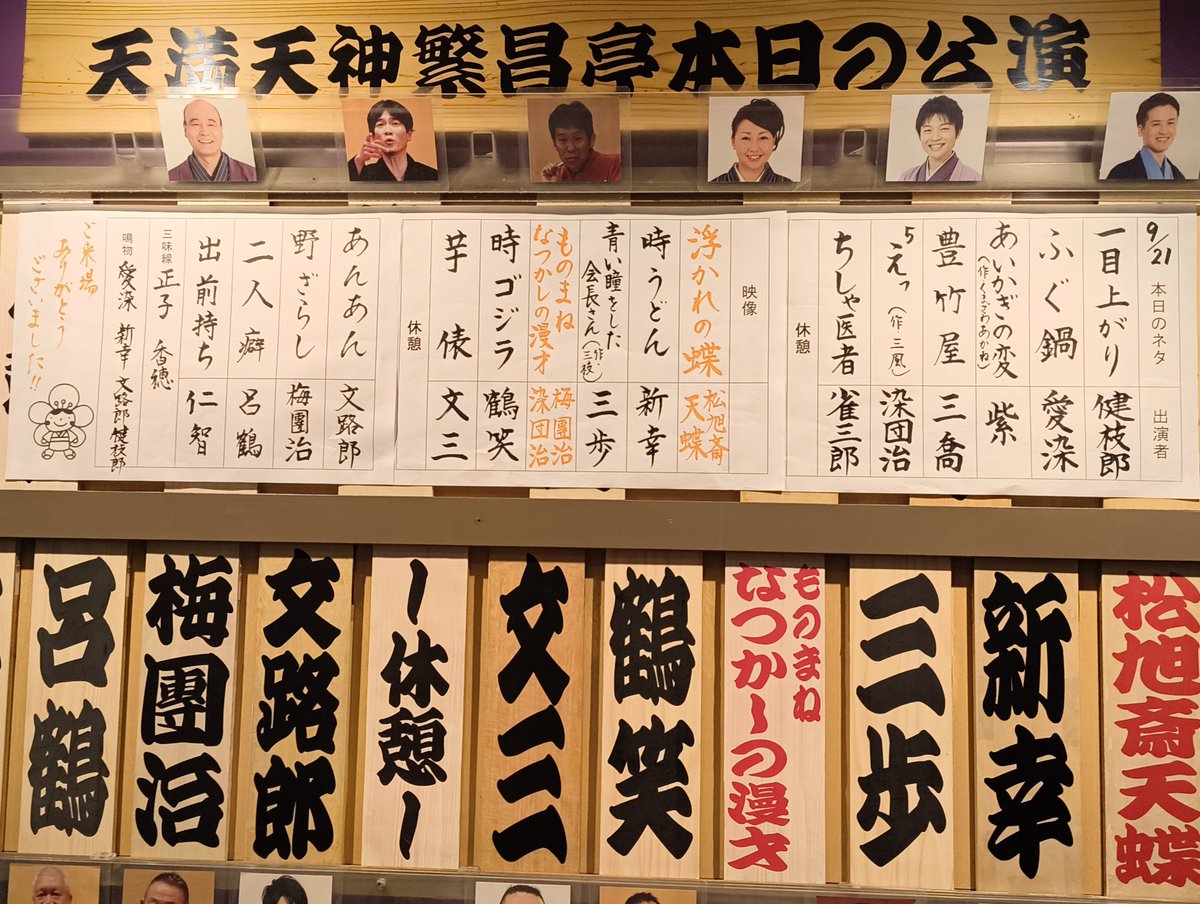 天満天神繁昌亭本日の公演
9/21
本日のネタ 出演者
一目上がり 健枝郎
ふぐ鍋 愛染
あいかぎの変(作・くまざわあかね) 紫
豊竹屋 三喬
5えっ(作・三風) 染団治
ちしゃ医者 雀三郎
休憩
映像
浮かれの蝶 松旭斎天蝶
時うどん 新幸
青い瞳をした会長さん(作・三枝) 三歩
ものまねなつかしの漫才 梅團治 染団治
時ゴジラ 鶴笑
芋俵 文三
休憩
あんあん 文路郎
野ざらし 梅團治
二人癖 呂鶴
出前持ち 仁智
三味線 正子 香穂
鳴物 愛染 新幸 文路郎 健枝郎
ご来場
ありがとう
ございました!!
松旭斎天蝶
新幸
三歩
ものまね
なつかしの漫才
鶴笑
文三
ー休憩ー
文路郎
梅團治
呂鶴